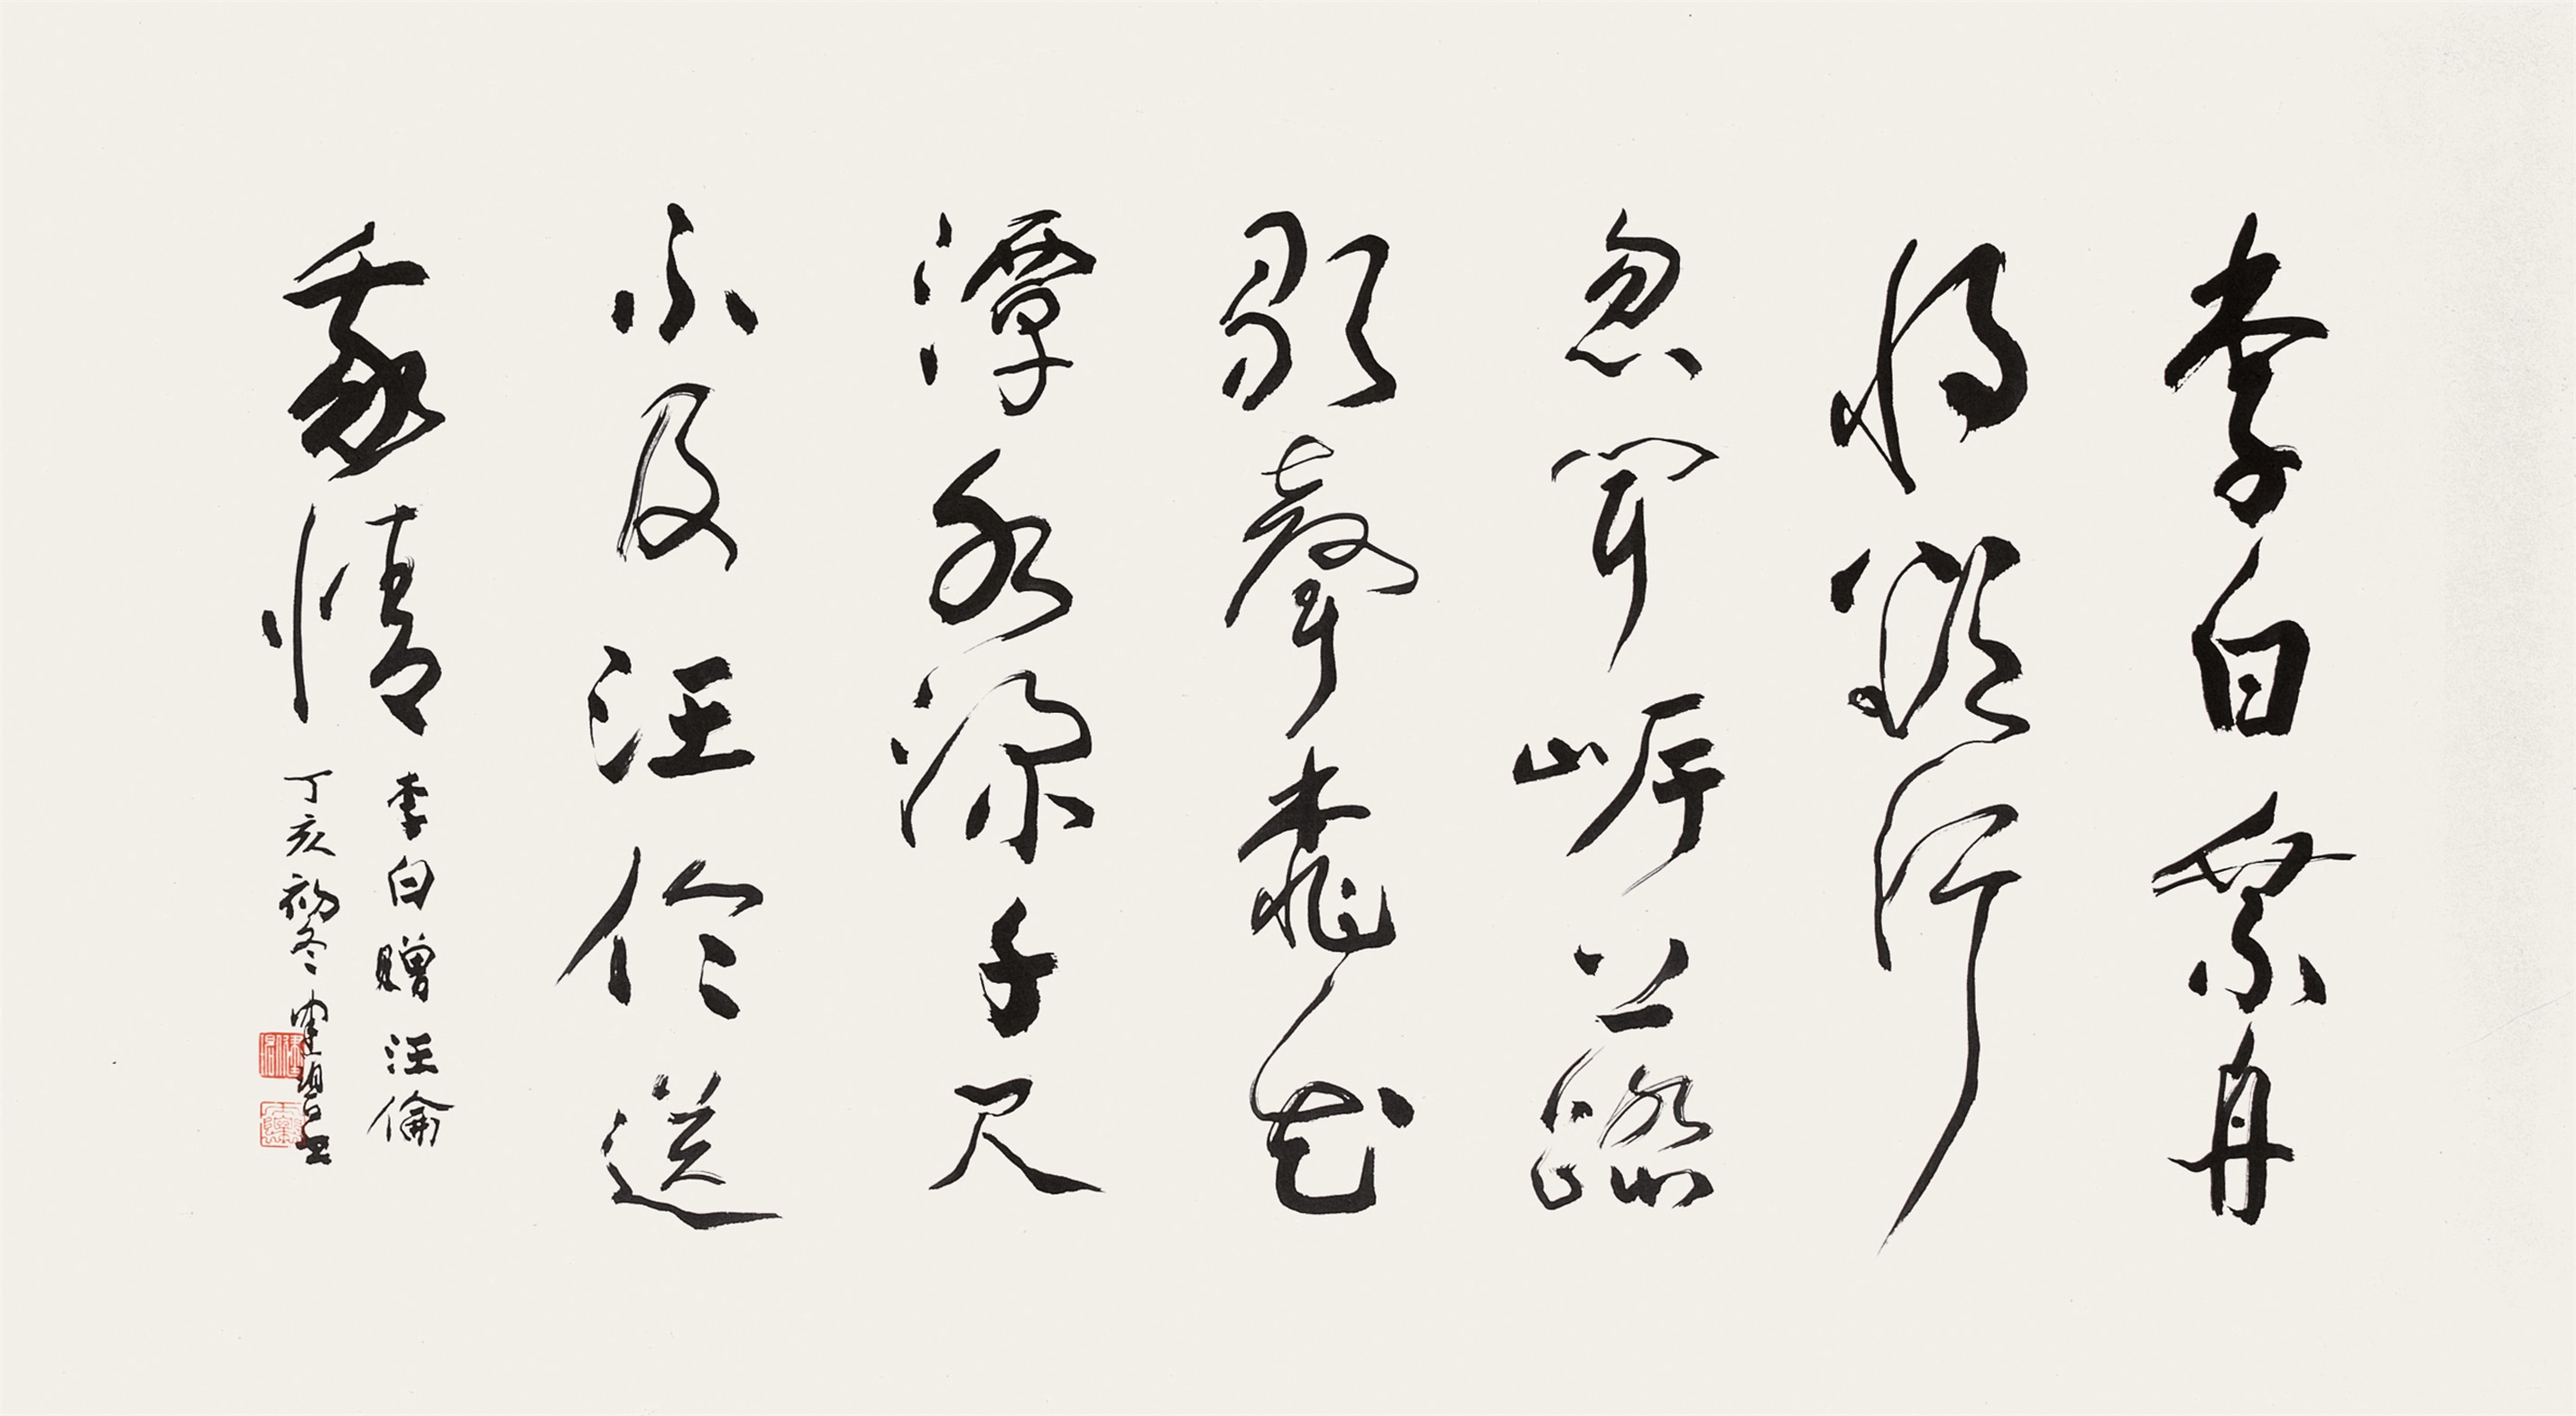 李白乘舟
將欲行
忽聞岸上踏
歌聲桃花
潭水深千尺
不及汪伦送
我情
李白贈汪倫
丁亥初冬